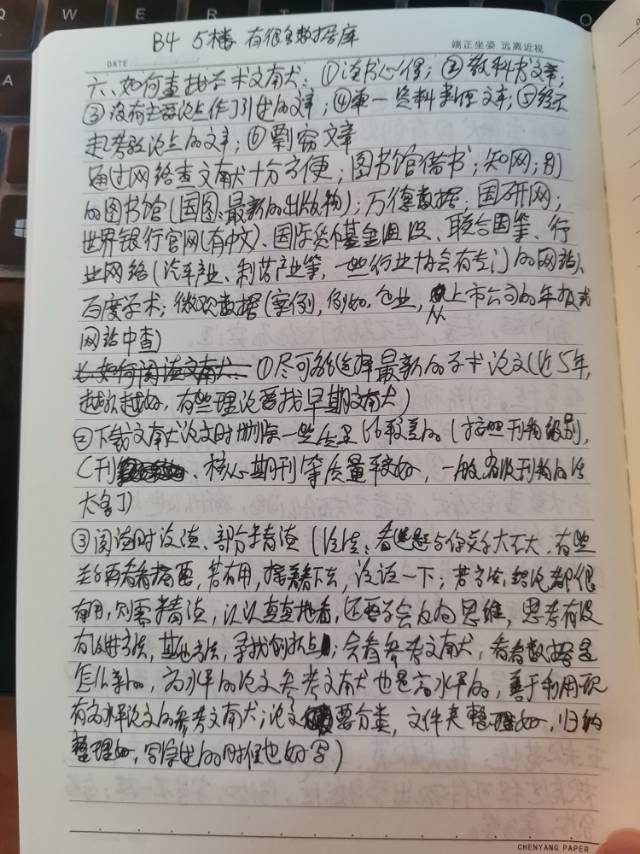 B4 5楼 有很多数据库
端正坐姿 远离近视
DATE
六、如何查找学术文献:①读书心得;②教科书文章;
③没有主要论点作了引出的文章;④单一资料整理文章;⑤经不
起考验论点的文章;⑥剽窃文章
通过网络查文献十分方便;图书馆借书;知网;别
的图书馆(国图:最新的出版物);万德数据;国研网;
世界银行官网(有中文)、国际货币基金组织、联合国等、行
业网络(汽车产业、制药产业等,一些行业协会有专门的网站)、
百度学术;微观数据(案例,例如,企业,从上市公司的年报或
网站中查)
七、如何阅读文献:①尽可能选择最新的学术论文(近5年,
越新越好,有些理论要找早期文献)
②下载文献论文时删除一些质量比较差的(按照刊物级别,
C刊、核心期刊等质量较好,一般省级刊物的
大多)
③阅读时泛读、部分精读(泛读:看选题与你文章大不大,有些
再看看摘要,若有用,接着看下去,泛读一下;若方法、结论都很
有用,则需精读,认认真真地看,还要学会反向思维,思考有没
有改进方法,其他方法,寻找创新点;会看参考文献,看看数据是
怎么来的,高水平的论文参考文献也是高水平的,善于利用现
有高水平论文的参考文献;论文要分类,文件夹整理好,归纳
整理好,写综述的时候也好写)
CHENYANG PAPER